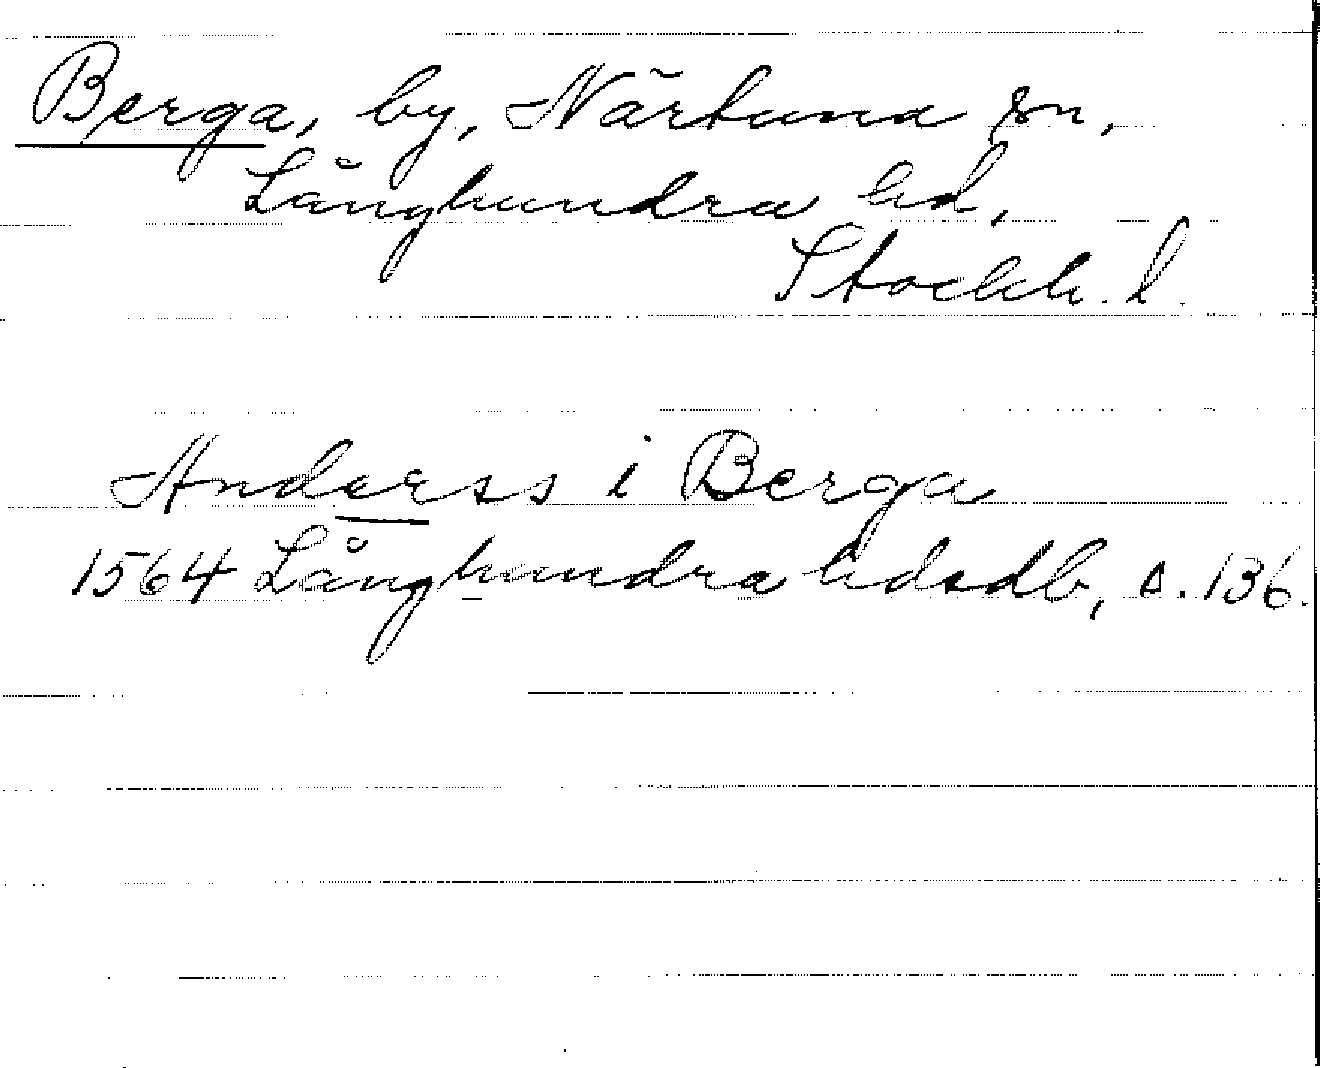 Berga, by, Närtuna sn,
Långhundra hd,
Stockh. l.
Anderss i Berga
1564 Långhundra hdsdb, s. 136.